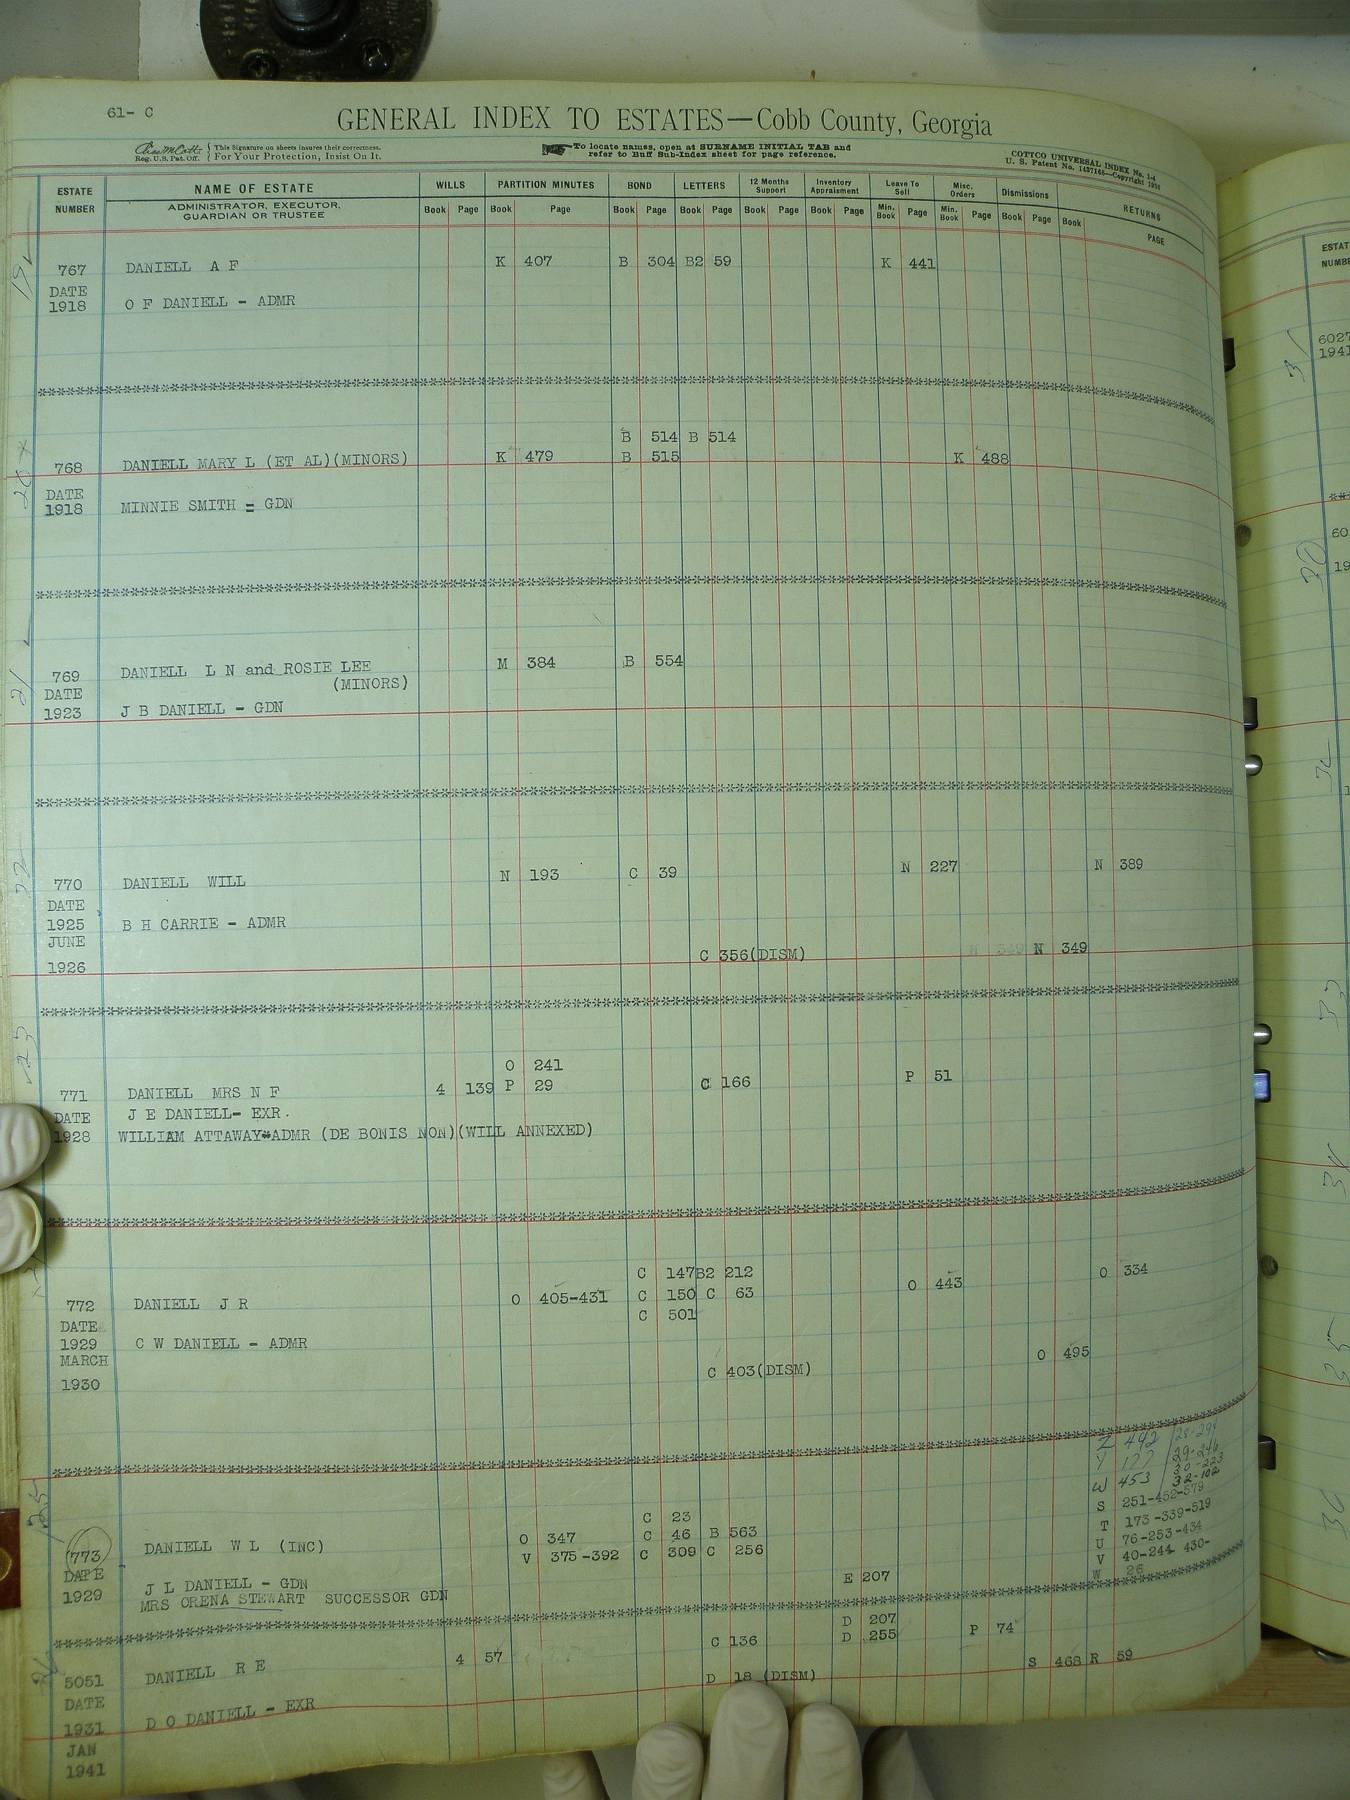 61- C
GENERAL INDEX TO ESTATES—Cobb County, Georgia
Reg. U.S. Pat. Off.
This Signature on sheets insures their correctness.
For Your Protection, Insist On It.
To locate names, open at SURNAME INITIAL TAB and
refer to Buff Sub-Index sheet for page reference.
COTTCO UNIVERSAL INDEX No. 1-4
U. S. Patent No. 1437146—Copyright
ESTATE NUMBER
NAME OF ESTATE
ADMINISTRATOR, EXECUTOR,
GUARDIAN OR TRUSTEE
WILLS PARTITION MINUTES BOND LETTERS 12 Months Support Inventory Appraisment Leave To Sell Misc. Orders Dismissions RETURNS
Book Page Book Page Book Page Book Page Book Page Book Page Min. Book Page Min. Book Page Book Page Book PAGE
767 DANIELL A F K 407 B 304 B2 59 K 441
DATE
1918 O F DANIELL - ADMR
B 514 B 514
768 DANIELL MARY L (ET AL)(MINORS) K 479 B 515 K 488
DATE
1918 MINNIE SMITH = GDN
769 DANIELL L N and ROSIE LEE M 384 B 554
(MINORS)
DATE
1923 J B DANIELL - GDN
770 DANIELL WILL N 193 C 39 N 227 N 389
DATE
1925 B H CARRIE - ADMR
JUNE
1926 C 356(DISM) N 349
O 241
771 DANIELL MRS N F 4 139 P 29 C 166 P 51
DATE J E DANIELL- EXR.
1928 WILLIAM ATTAWAY-ADMR (DE BONIS NON)(WILL ANNEXED)
C 147 B2 212 O 334
772 DANIELL J R O 405-431 C 150 C 63 O 443
C 501
DATE
1929 C W DANIELL - ADMR
MARCH O 495
1930 C 403(DISM)
Z 442 28-291
Y 177 29-246
30-223
W 453 32-102
S 251-452-579
C 23 T 173-339-519
O 347 C 46 B 563 U 76-253-434
773 DANIELL W L (INC) V 375-392 C 309 C 256 V 40-244- 430-
W 26
DATE J L DANIELL - GDN E 207
1929 MRS ORENA STEWART SUCCESSOR GDN
D 207
C 136 D 255 P 74
5051 DANIELL R E 4 57 D 18 (DISM) S 468 R 59
DATE
1931 D O DANIELL - EXR
JAN
1941
ESTAT
NUMB
6027
1941
60
19